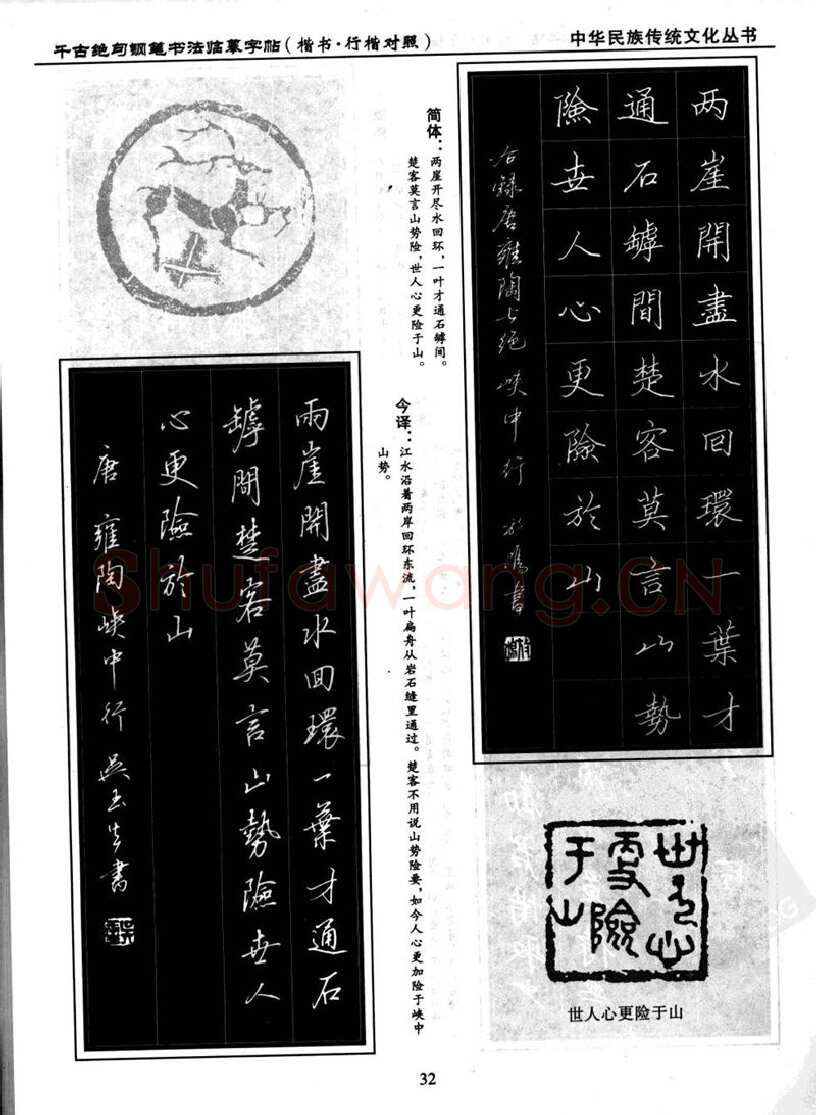 千古绝句钢笔书法临摹字帖（楷书·行楷对照）
中华民族传统文化丛书
两崖開盡水回環一葉才
通石罅間楚客莫言山勢
險世人心更險於山
右録唐雍陶七绝峡中行 於鵬書
简体：两崖开尽水回环，一叶才通石罅间。
楚客莫言山势险，世人心更险于山。
今译：江水沿着两岸回环东流，一叶扁舟从岩石缝里通过。楚客不用说山势险要，如今人心更加险于峡中
山势。
兩崖開盡水回環一葉才通石
罅間楚客莫言山勢險世人
心更險於山
唐 雍陶峡中行 吴玉生書
世人心
更險
于山
世人心更险于山
32
Shufawang.CN